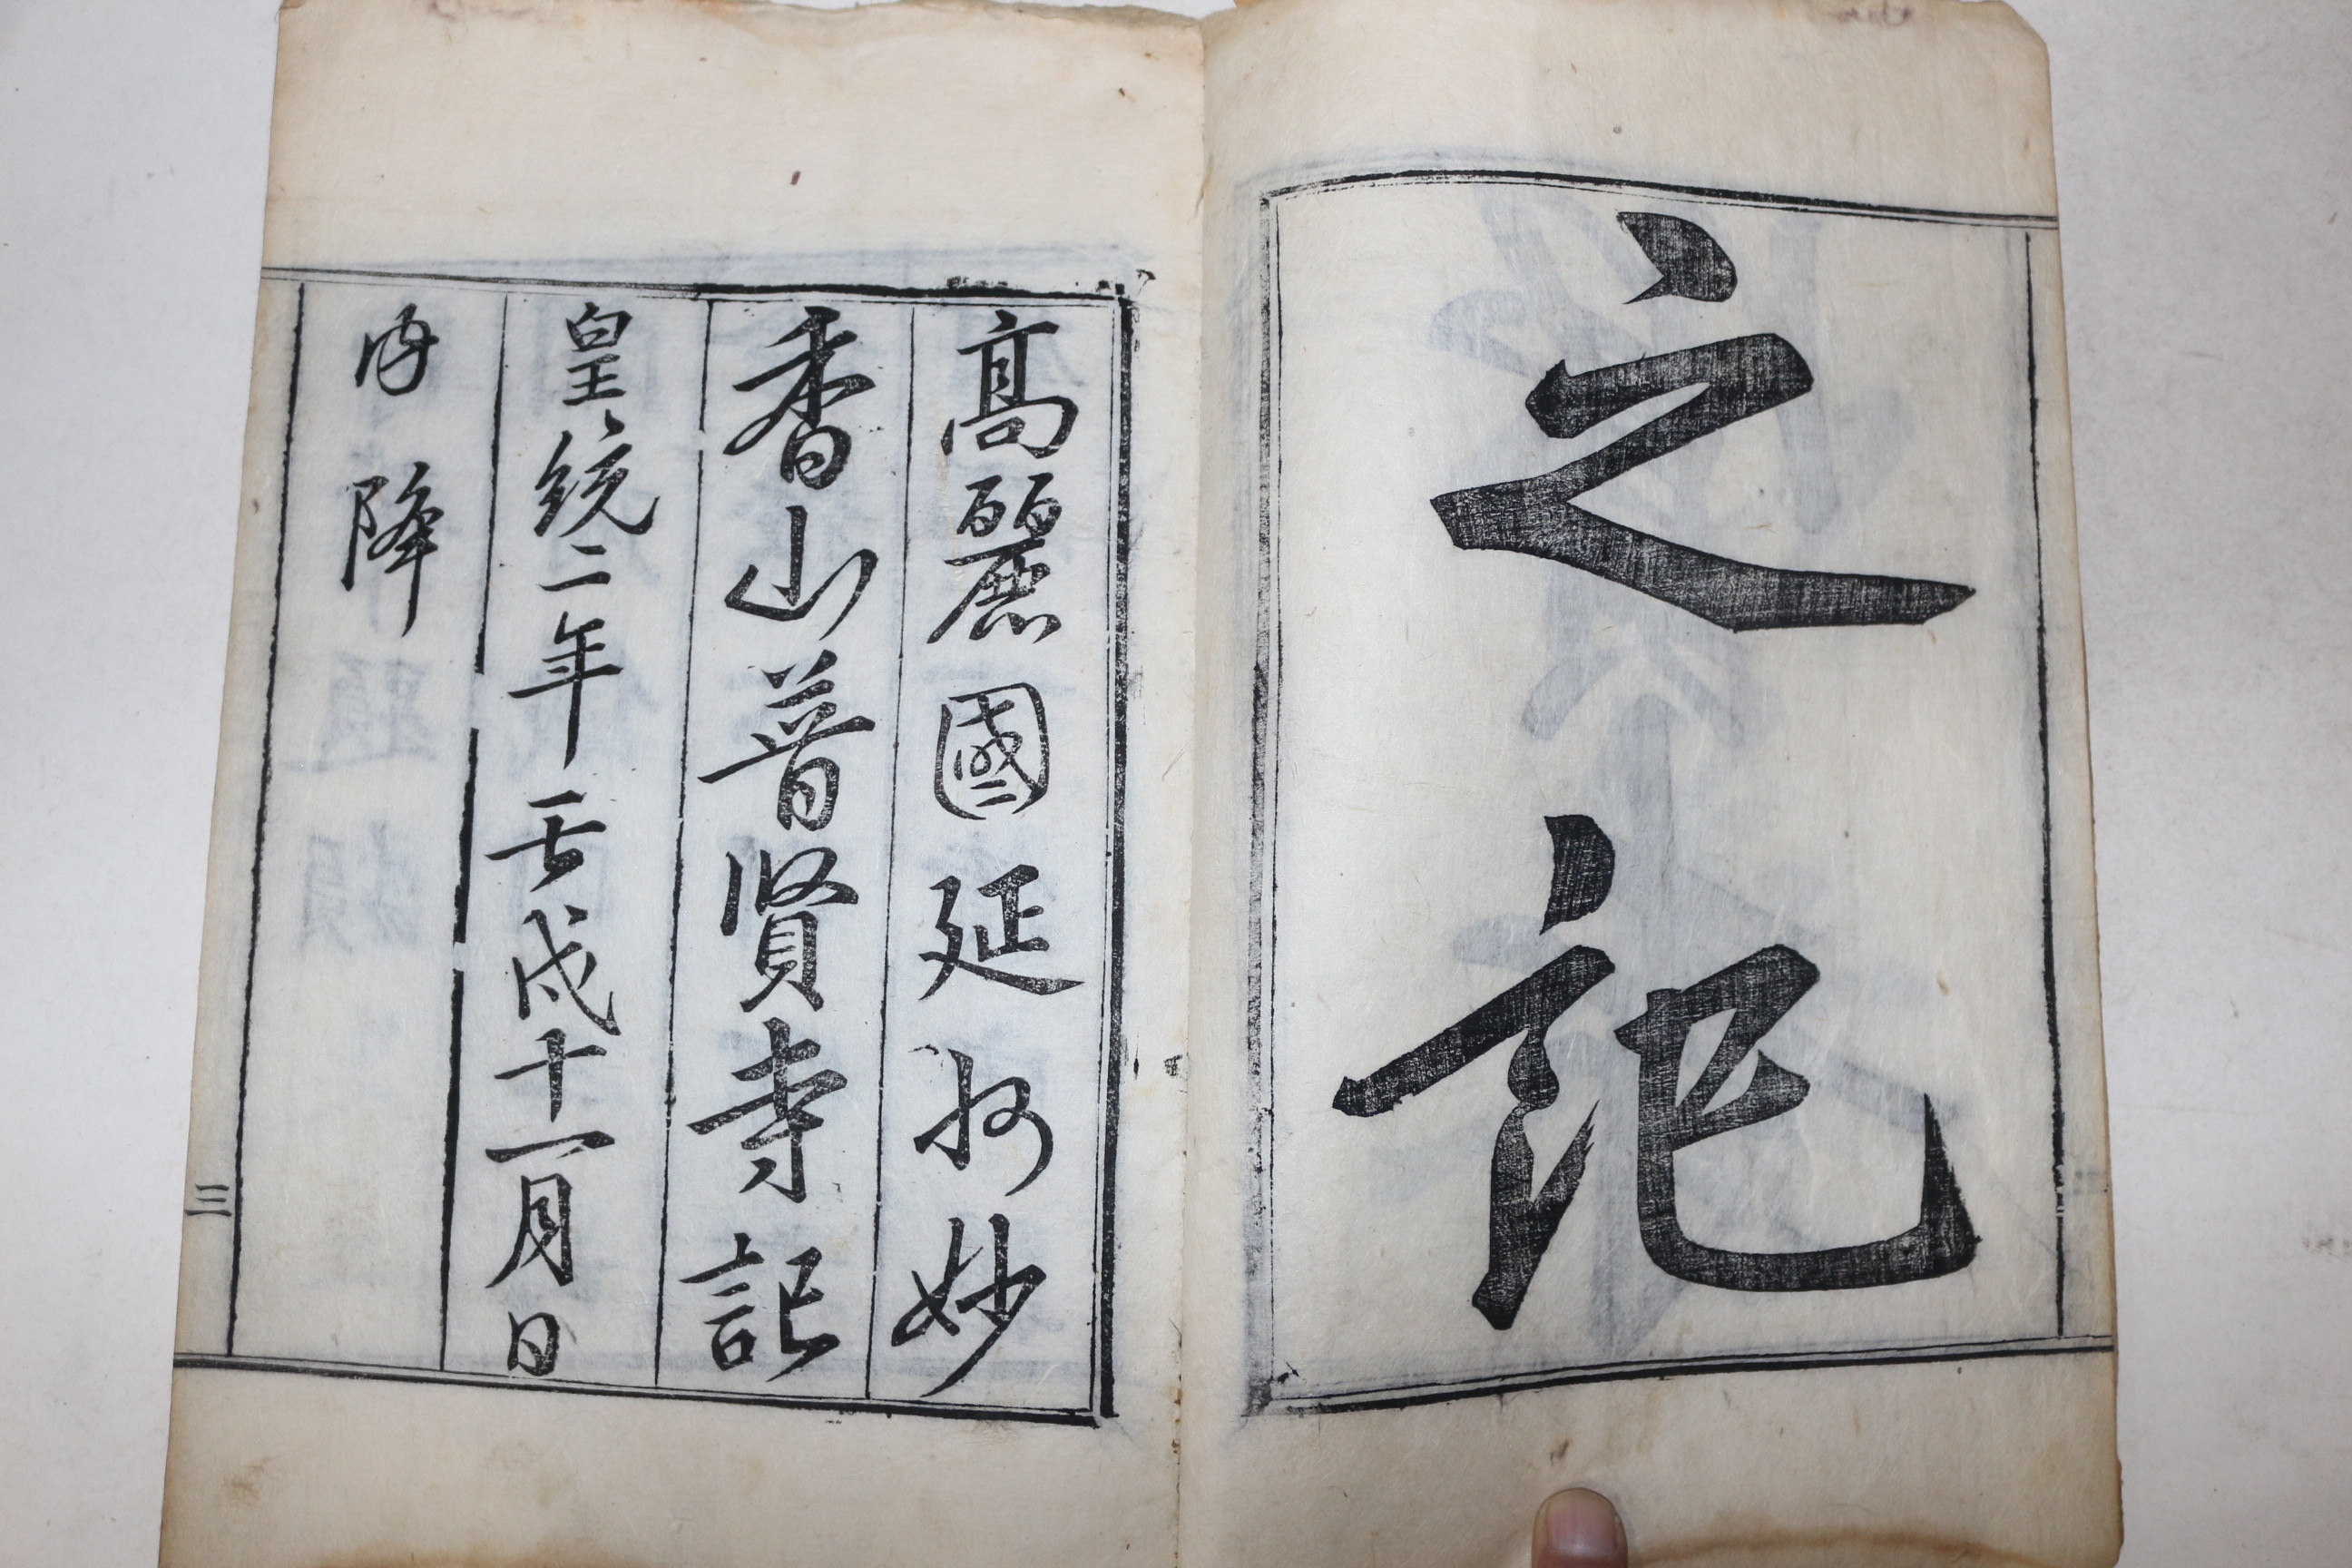 之記
高麗國延州妙
香山普賢寺記
皇統二年壬戌十一月日
内降
三